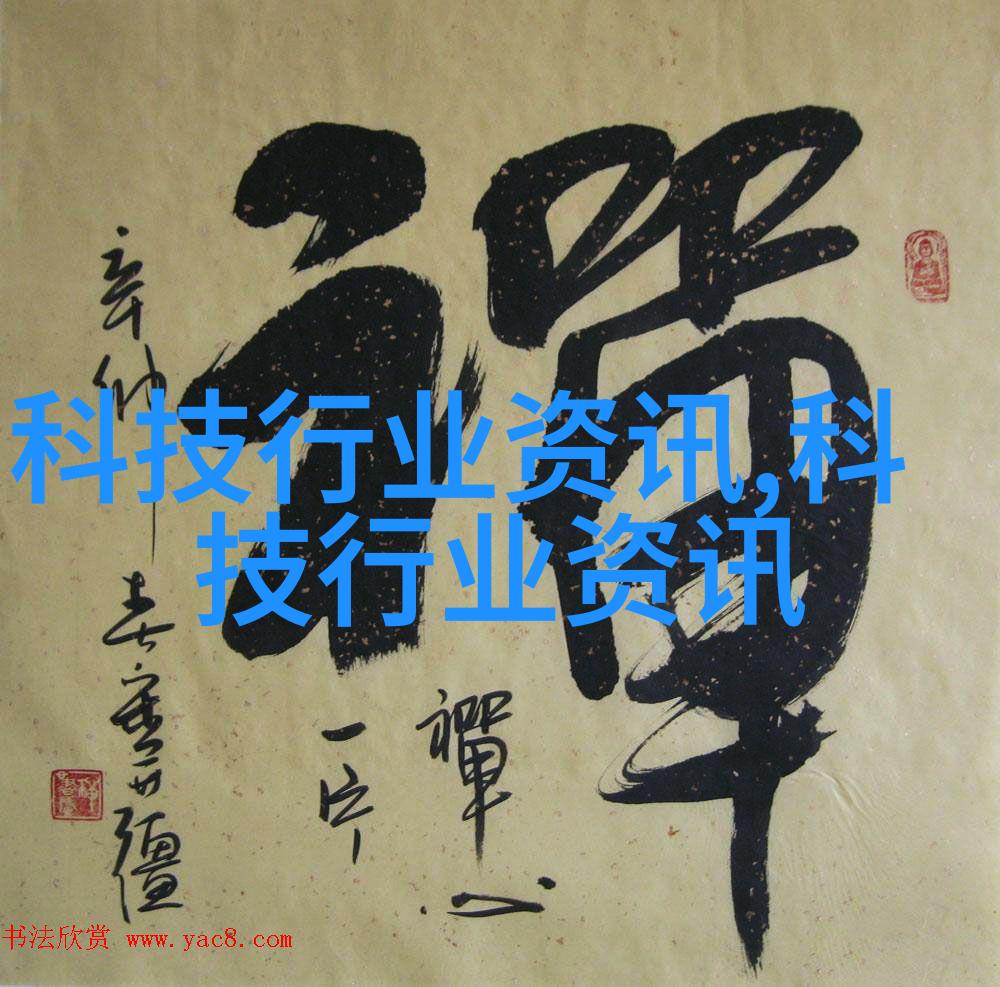 科技行业资讯,科
技行业资讯
禪
禪心
一片
辛卯春
书法欣赏 www.yac8.com